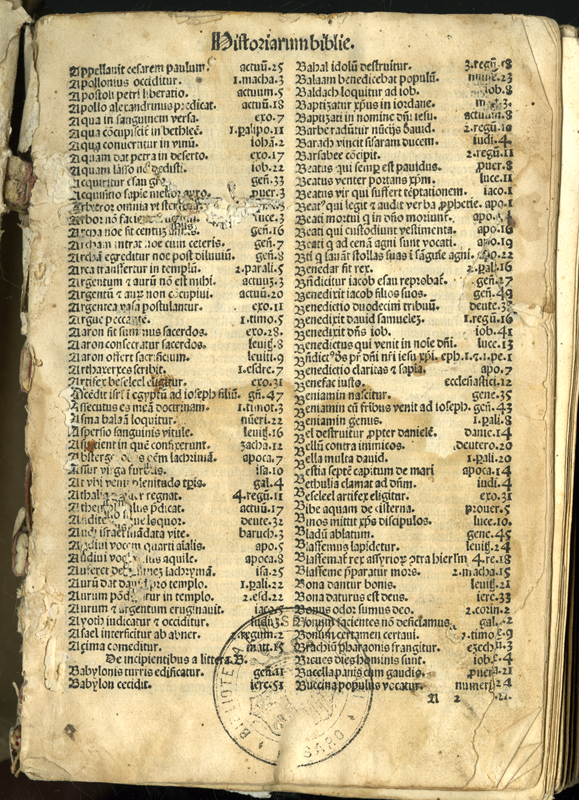 Historiarum biblie.
Appellavit cesarem paulum. actuū.25
Apollonius occiditur. 1.macha.3
Apostoli petri liberatio. actuum.5
Apollo alexandrinus p̄dicat. actuū.18
Aqua in sanguinem versa. exo.7
Aqua cōcupiscit̄ in bethleē. 1.palipo.11
Aqua conuertitur in vinū. iohā.2
Aquam dat petra in deserto. exo.17
Aquam lasso nō dedisti. iob.22
Acquiritur esau gen̄.33
Acquisitio sapie melior auro. puer.3
Arbor nō faciens luce.3
Archa noe fit gen̄.16
Archam intrat noe cum ceteris. gen̄.7
Archā egreditur noe post diluuiū. gen̄.8
Arca transfertur in templū. 2.parali.5
Argentum & aurū nō est mihi. actuū.3
Argentū & aurū non cōcupiui. actuū.20
Argentea vasa postulantur. exo.11
Argue peccante. 1.timo.5
Aaron fit summus sacerdos. exo.28
Aaron consecratur sacerdos. leuit̄.8
Aaron offert sacrificium. leuiti.9
Arthaxerxes scribit. 1.esdre.7
Artifex beseleel eligitur. exo.31
Ascēdit isrl̄ ī egyptū ad ioseph filiū. gen̄.47
Assecutus es meā doctrinam. 1.timot.3
Asina balaā loquitur. nūeri.22
Aspersio sanguinis vitule. leuit̄.16
Aspicient in quē confixerunt. zacha.12
Absterget deus oēm lachrimā. apoca.7
Assur virga furoris. isa.10
At vbi venit plenitudo tp̄is. gal.4
Athalia regnat. 4.regū.11
Athenis paulus p̄dicat. actuū.17
Audite que loquor. deute.32
Audi israel mādata vite. baruch.3
Audiui vocem quarti aīalis. apo.5
Audiui vocem aquile. apoca.8
Auferet deus omnez lachrymā. isa.25
Aurū dat dauid pro templo. 1.pali.22
Aurum pōderatur in templo. 2.esd.22
Aurum & argentum eruginauit. iaco.5
Ayoth iudicatur & occiditur. iudi.3
Asael interficitur ab abner. 2.regum.2
Azima comeditur. matt.15
De incipientibus a littera. B.
Babylonis turris edificatur. gen̄.11
Babylon cecidit. iere.51
Bahal idolū destruitur. 3.regū.18
Balaam benedicebat populū. nūme.23
Baldach loquitur ad iob. iob.8
Baptizatur xp̄us in iordane. .3.
Baptizati in nomine dn̄i iesu. actuum.8
Barbe radūtur nūcijs dauid. 2.regū.10
Barach vincit sisaram ducem. iudi.4
Barsabee cōcipit. 2.regū.11
Beatus qui semp̄ est pauidus. puer.8
Beatus venter portans xp̄m. luce.11
Beatus vir qui suffert tēptationem. iaco.1
Beat9 qui legit & audit verba p̄phetie. apo.1
Beati mortui q in dn̄o moriunt̄. apo.
Beati qui custodiunt vestimenta. apo.16
Beati q ad cenā agni sunt vocati. apo.19
Bt̄i q lauāt stollas suas ī sāguīe agni. apo.22
Benedar fit rex. 2.pali.16
Bn̄dicitur iacob esau reprobat̄. gen̄.27
Benedixit iacob filios suos. gen̄.49
Benedictio duodecim tribuū. deute.3
Benedixit dauid samuelez. 1.regū.16
Benedixit dn̄s iob. iob.41
Benedictus qui venit in noīe dn̄i. luce.13
Bn̄dict9 d̄s pr̄ dn̄i nr̄i iesu xp̄i. eph.1.&.1.pe.1
Benedictio claritas & sapia. apo.7
Benefac iusto. ecclesiastici.12
Beniamin nascitur. gene.35
Beniamin cū fribus venit ad ioseph. gen̄.43
Beniamin genus. 1.pali.7
Bel destruitur ꝓpter danielē. danie.14
Bellū contra inimicos. deutero.20
Bella multa dauid. 1.pali.20
Bestia septē capitum de mari apoca.14
Bethulia clamat ad dn̄m. iudi.4
Beseleel artifex eligitur. exo.31
Bibe aquam de cisterna. prouer.5
Binos mittit xp̄s discipulos. luce.10
Bladū ablatum. gene.45
Blasfemus lapidetur. leuit̄.24
Blasfemat rex assyrior̄ cōtra hierl̄m 4.re.18
Blasfeme p̄paratur mors. 2.macha.15
Boa dantur bonis. leuit̄.21
Bona daturus est deus. iere.33
Bonus odor sumus deo. 2.corin.2
Bonum facientes nō deficiamus. gal..2
Bonum certamen certaui. 2.timo.9
Brachiū pharaonis frangitur. ezech.3
Breues dies hominis sunt. iob.4
Bucella panis cum gaudio. puer.21
Buccina populus vocatur. numer.24
A 2 .21.
BIBLIOTECA
SARO